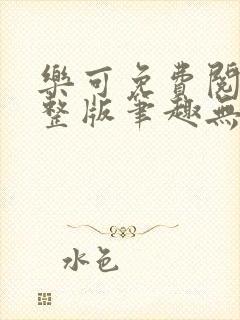 樂可免費閱
整版筆趣無
水色